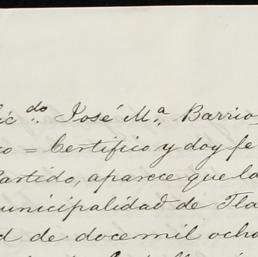 Lic.do José M.a Barrio
co = Certifico y doy fe
Partido, aparece que la
unicipalidad de Tla
d de docemil ocho